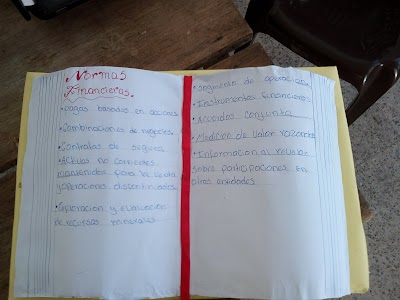 Normas
Financieras.
• pagos basados en acciones
• Combinaciones de negocios
• Contratos de seguros
Activos no corrientes
mantenidos para la venta
y operaciones discontinuadas
• Exploracion y evaluacion
de recursos minerales
• Segmento de operacion
• Instrumentos financieros
• Acuerdos conjunta
• Medicion de Valor razonable
• Informacion a revelar
sobre participaciones en
otras entidades